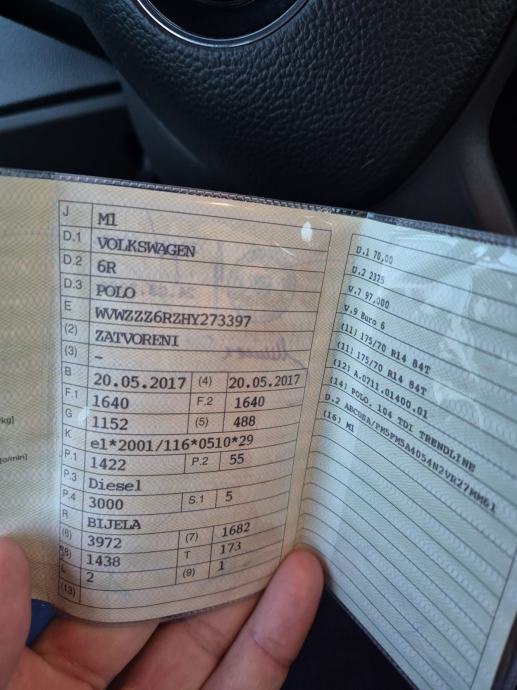 J M1
D.1 VOLKSWAGEN
D.2 6R
D.3 POLO
E WVWZZZ6RZHY273397
(2) ZATVORENI
(3) -
B 20.05.2017 (4) 20.05.2017
F.1 1640 F.2 1640
G 1152 (5) 488
K e1*2001/116*0510*29
P.1 1422 P.2 55
P.3 Diesel
P.4 3000 S.1 5
R BIJELA
(6) 3972 (7) 1682
(8) 1438 T 173
L 2 (9) 1
(13)
kg]
[o/min]
D.1 70,00
D.2 2375
V.7 97,000
V.9 Euro 6
(11) 175/70 R14 84T
(11) 175/70 R14 84T
(12) A.0711.01400.01
(14) POLO. 104 TDI TRENDLINE
D.2
(16) M1